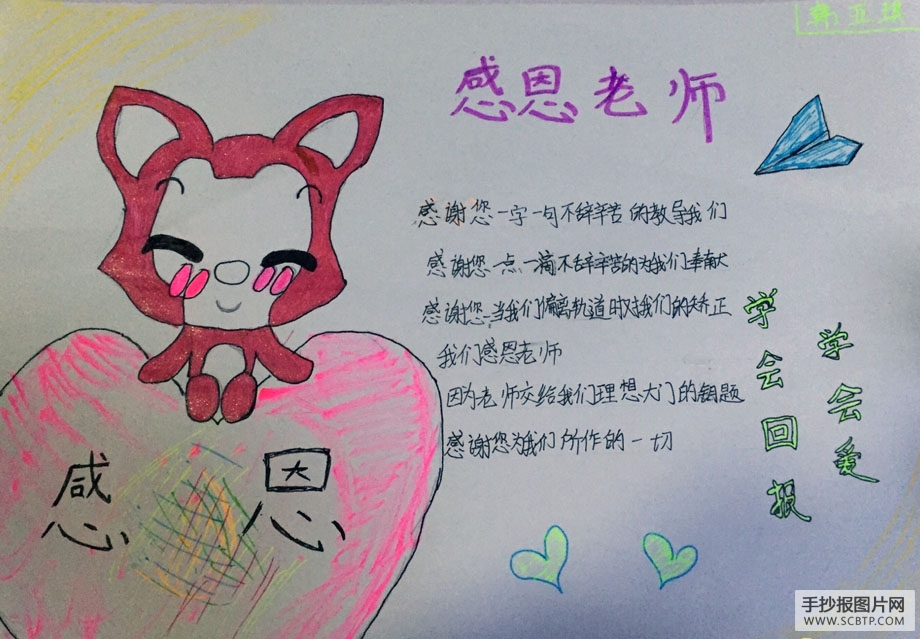 韩亚琪
感恩老师
感谢您一字一句不辞辛苦的教导我们
感谢您一点一滴不辞辛苦的为我们奉献
感谢您当我们偏离轨道时对我们的矫正
我们感恩老师
因为老师交给我们理想大门的钥题
感谢您为我们所作的一切
学会回报
学会爱
感恩
手抄报图片网
WWW.SCBTP.COM